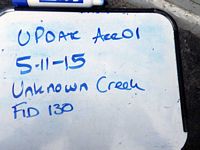 UPDAR Acc01
5-11-15
Unknown Creek
FID 130